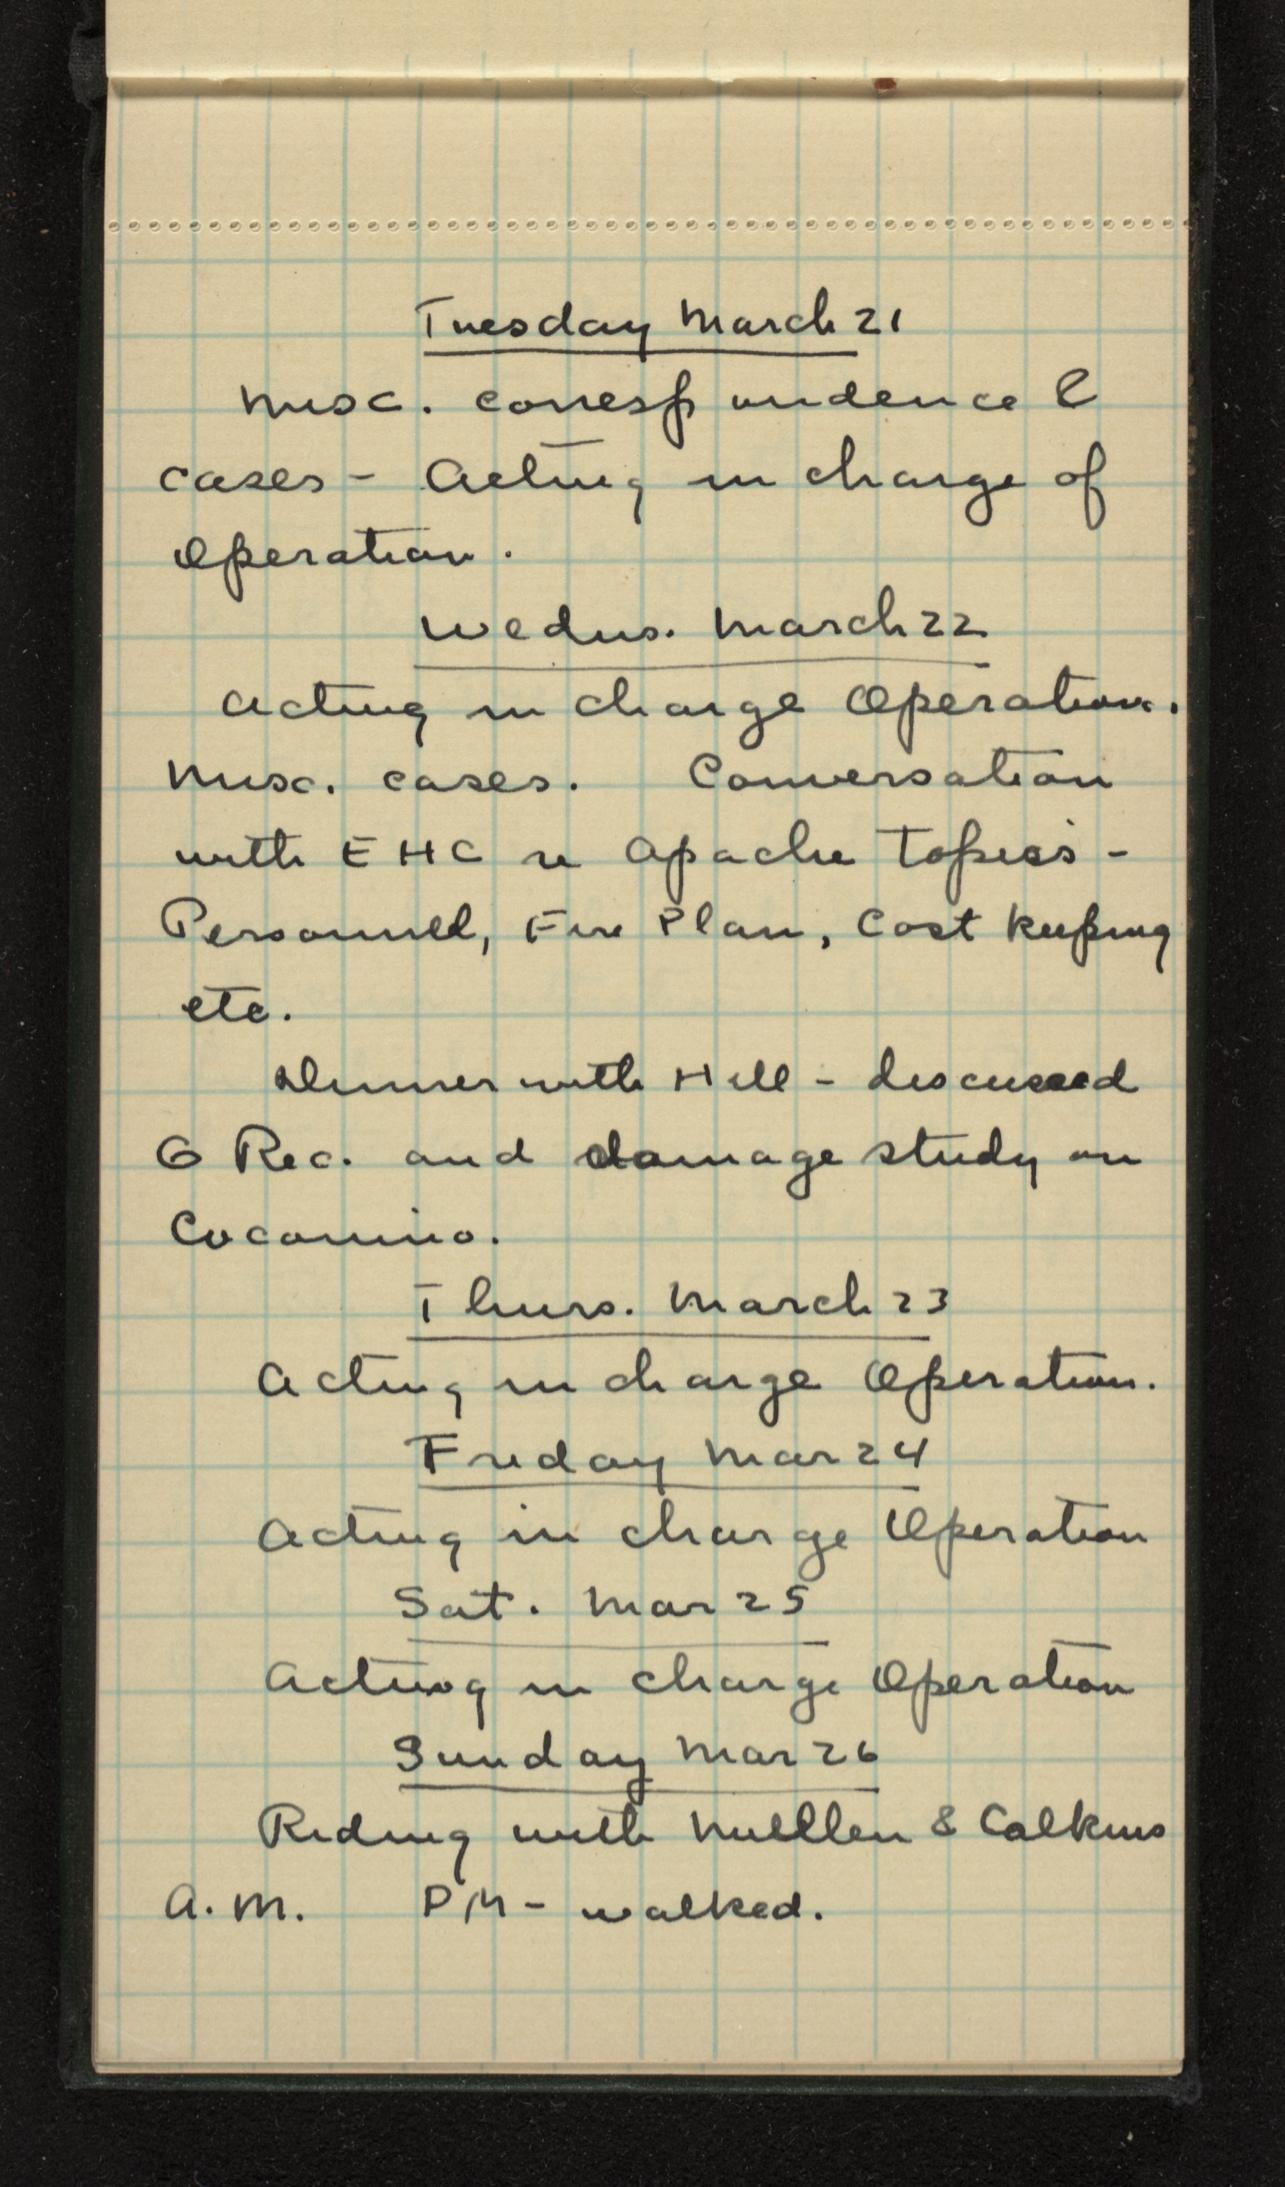 Tuesday March 21
Misc. correspondence &
cases - Acting in charge of
Operation.
Wedns. March 22
Acting in charge Operation.
Misc. cases. Conversation
with EHC re Apache Topics -
Personnel, Fire Plan, Cost Keeping
etc.
Dinner with Hill - discussed
G Rec. and damage study on
Coconino.
Thurs. March 23
Acting in charge Operation.
Friday Mar 24
Acting in charge Operation
Sat. Mar 25
Acting in charge Operation
Sunday Mar 26
Riding with Mullen & Calkins
A.M. PM - walked.